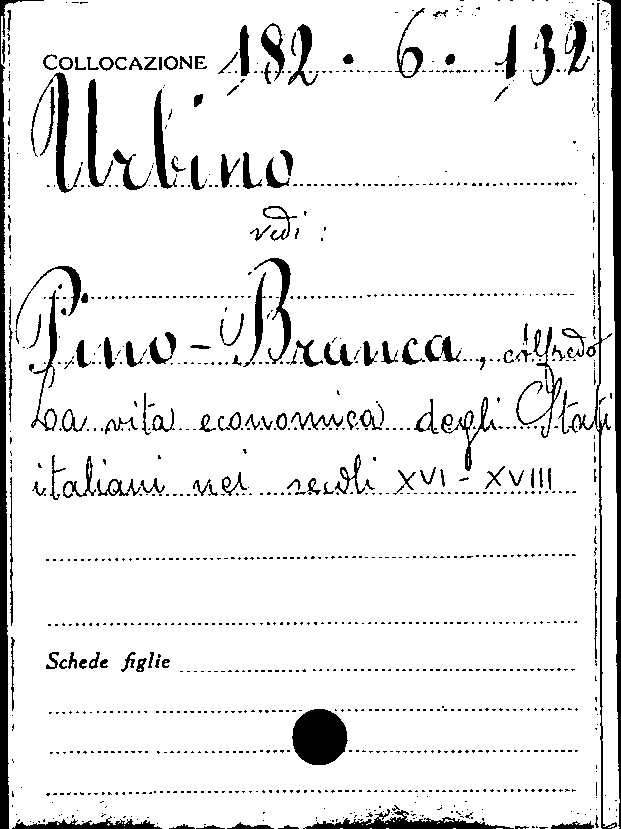 COLLOCAZIONE 182 . 6 . 132
Urbino
vedi :
Pino - Branca, Alfredo
La vita economica degli Stati
italiani nei secoli XVI - XVIII
Schede figlie